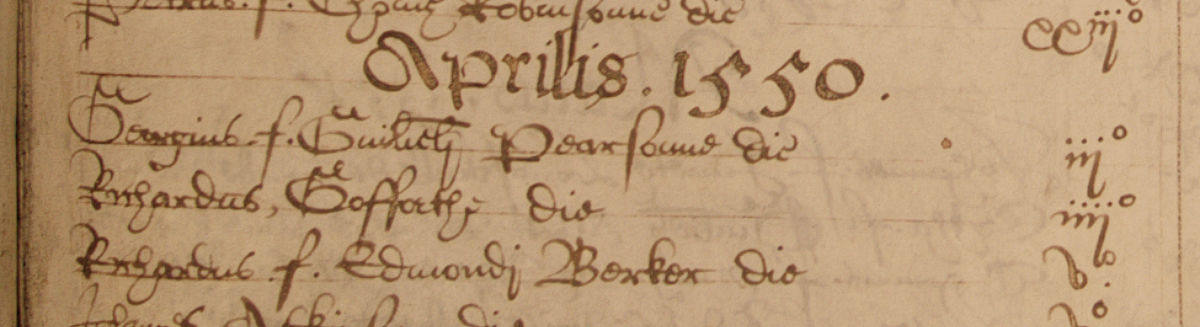 Robinsonne die xxiijº
Aprilis . 1550 .
Georgius . f . Guilielmi Pearsonne die iijº
Richardus, Gofforthe die iiijº
Richardus . f . Edmondi Berker die vº
die